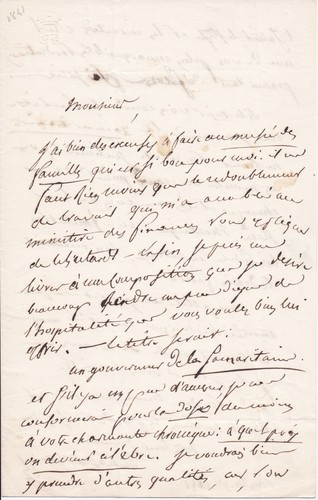 Monsieur,
J'ai bien des excuses à faire au musée des
familles qui est si bon pour moi. il ne
faut rien moins que le redoublement
de travail qui m'a accablé au
ministère des finances pour expliquer
de retards — enfin je puis me
livrer à une composition que je désire
beaucoup rendre un peu digne de
l'hospitalité que vous voulez bien lui
offrir. — le titre serait:
un gouverneur de la Samaritaine.
et s'il y a un peu d'amour je me
conformerai pour la dose du moins
à votre charmante chronique: à quel prix
on devient célèbre. je voudrais bien
y prendre d'autres qualités, car l'on